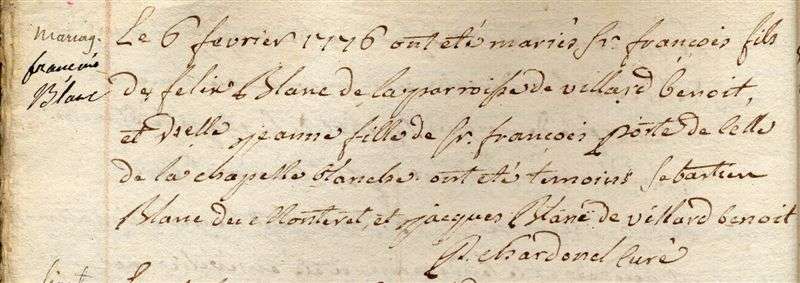 Mariag.
françois
Blanc
Le 6 fevrier 1776 ont eté mariés Sr. françois fils
de felix Blanc de la parroisse de villard benoit,
et dselle jeanne fille de Sr. françois porte de celle
de la chapelle blanche. ont eté temoins Sebastien
Blanc du Monteret, et jacques Blanc de villard benoit
chardonel curé